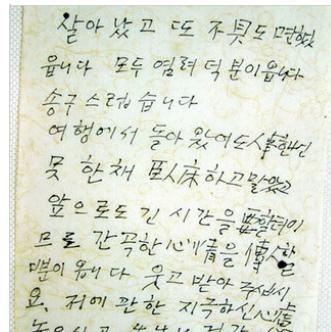 살아 났고 또 不具도 면했
읍니다 모두 염려 덕분이읍니다
송구 스럽습니다
여행에서 돌아 왔어도 人事한번
못한채 臥床하고 말았고
앞으로도 긴 시간을 要할터이
므로 간곡한 心情을 傳할
뿐이 옵니다 웃고 받아 주십시
요. 저에 관한 지극하신